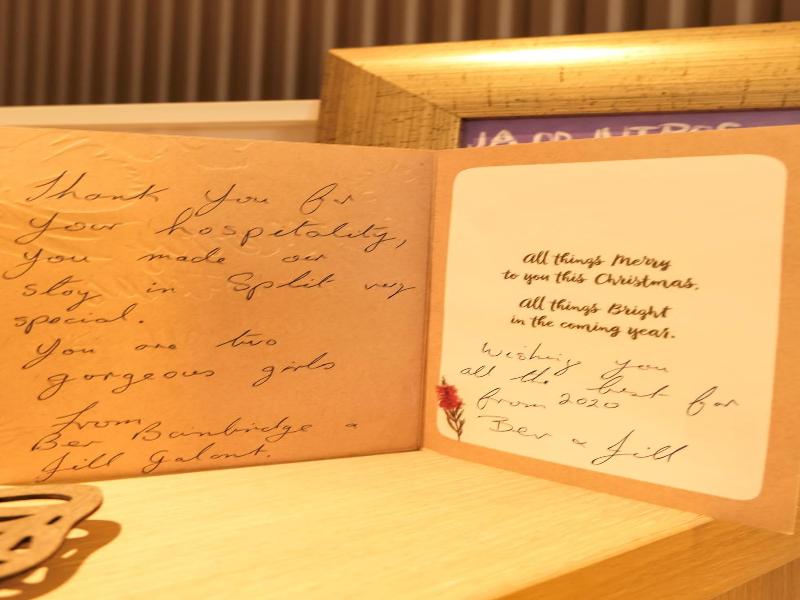 Thank you for
your hospetality,
you made our
stay in Split very
special.
You are two
gorgeous girls
From
Bev Bainbridge &
Jill Galant.
all things Merry
to you this Christmas.
all things Bright
in the coming year.
Wishing you
all the best for
from 2020
Bev & Jill